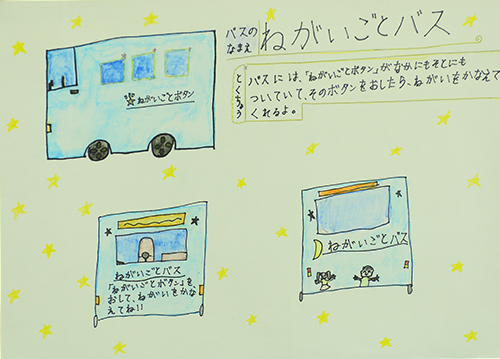 バスの
なまえ
ねがいごとバス
とくちょう
バスには、「ねがいごとボタン」がなかにもそとにも
ついていて、そのボタンをおしたら、ねがいをかなえて
くれるよ。
ねがいごとボタン
ねがいごとバス
「ねがいごとボタン」を
おして、ねがいをかな
えてね!!
ねがいごとバス